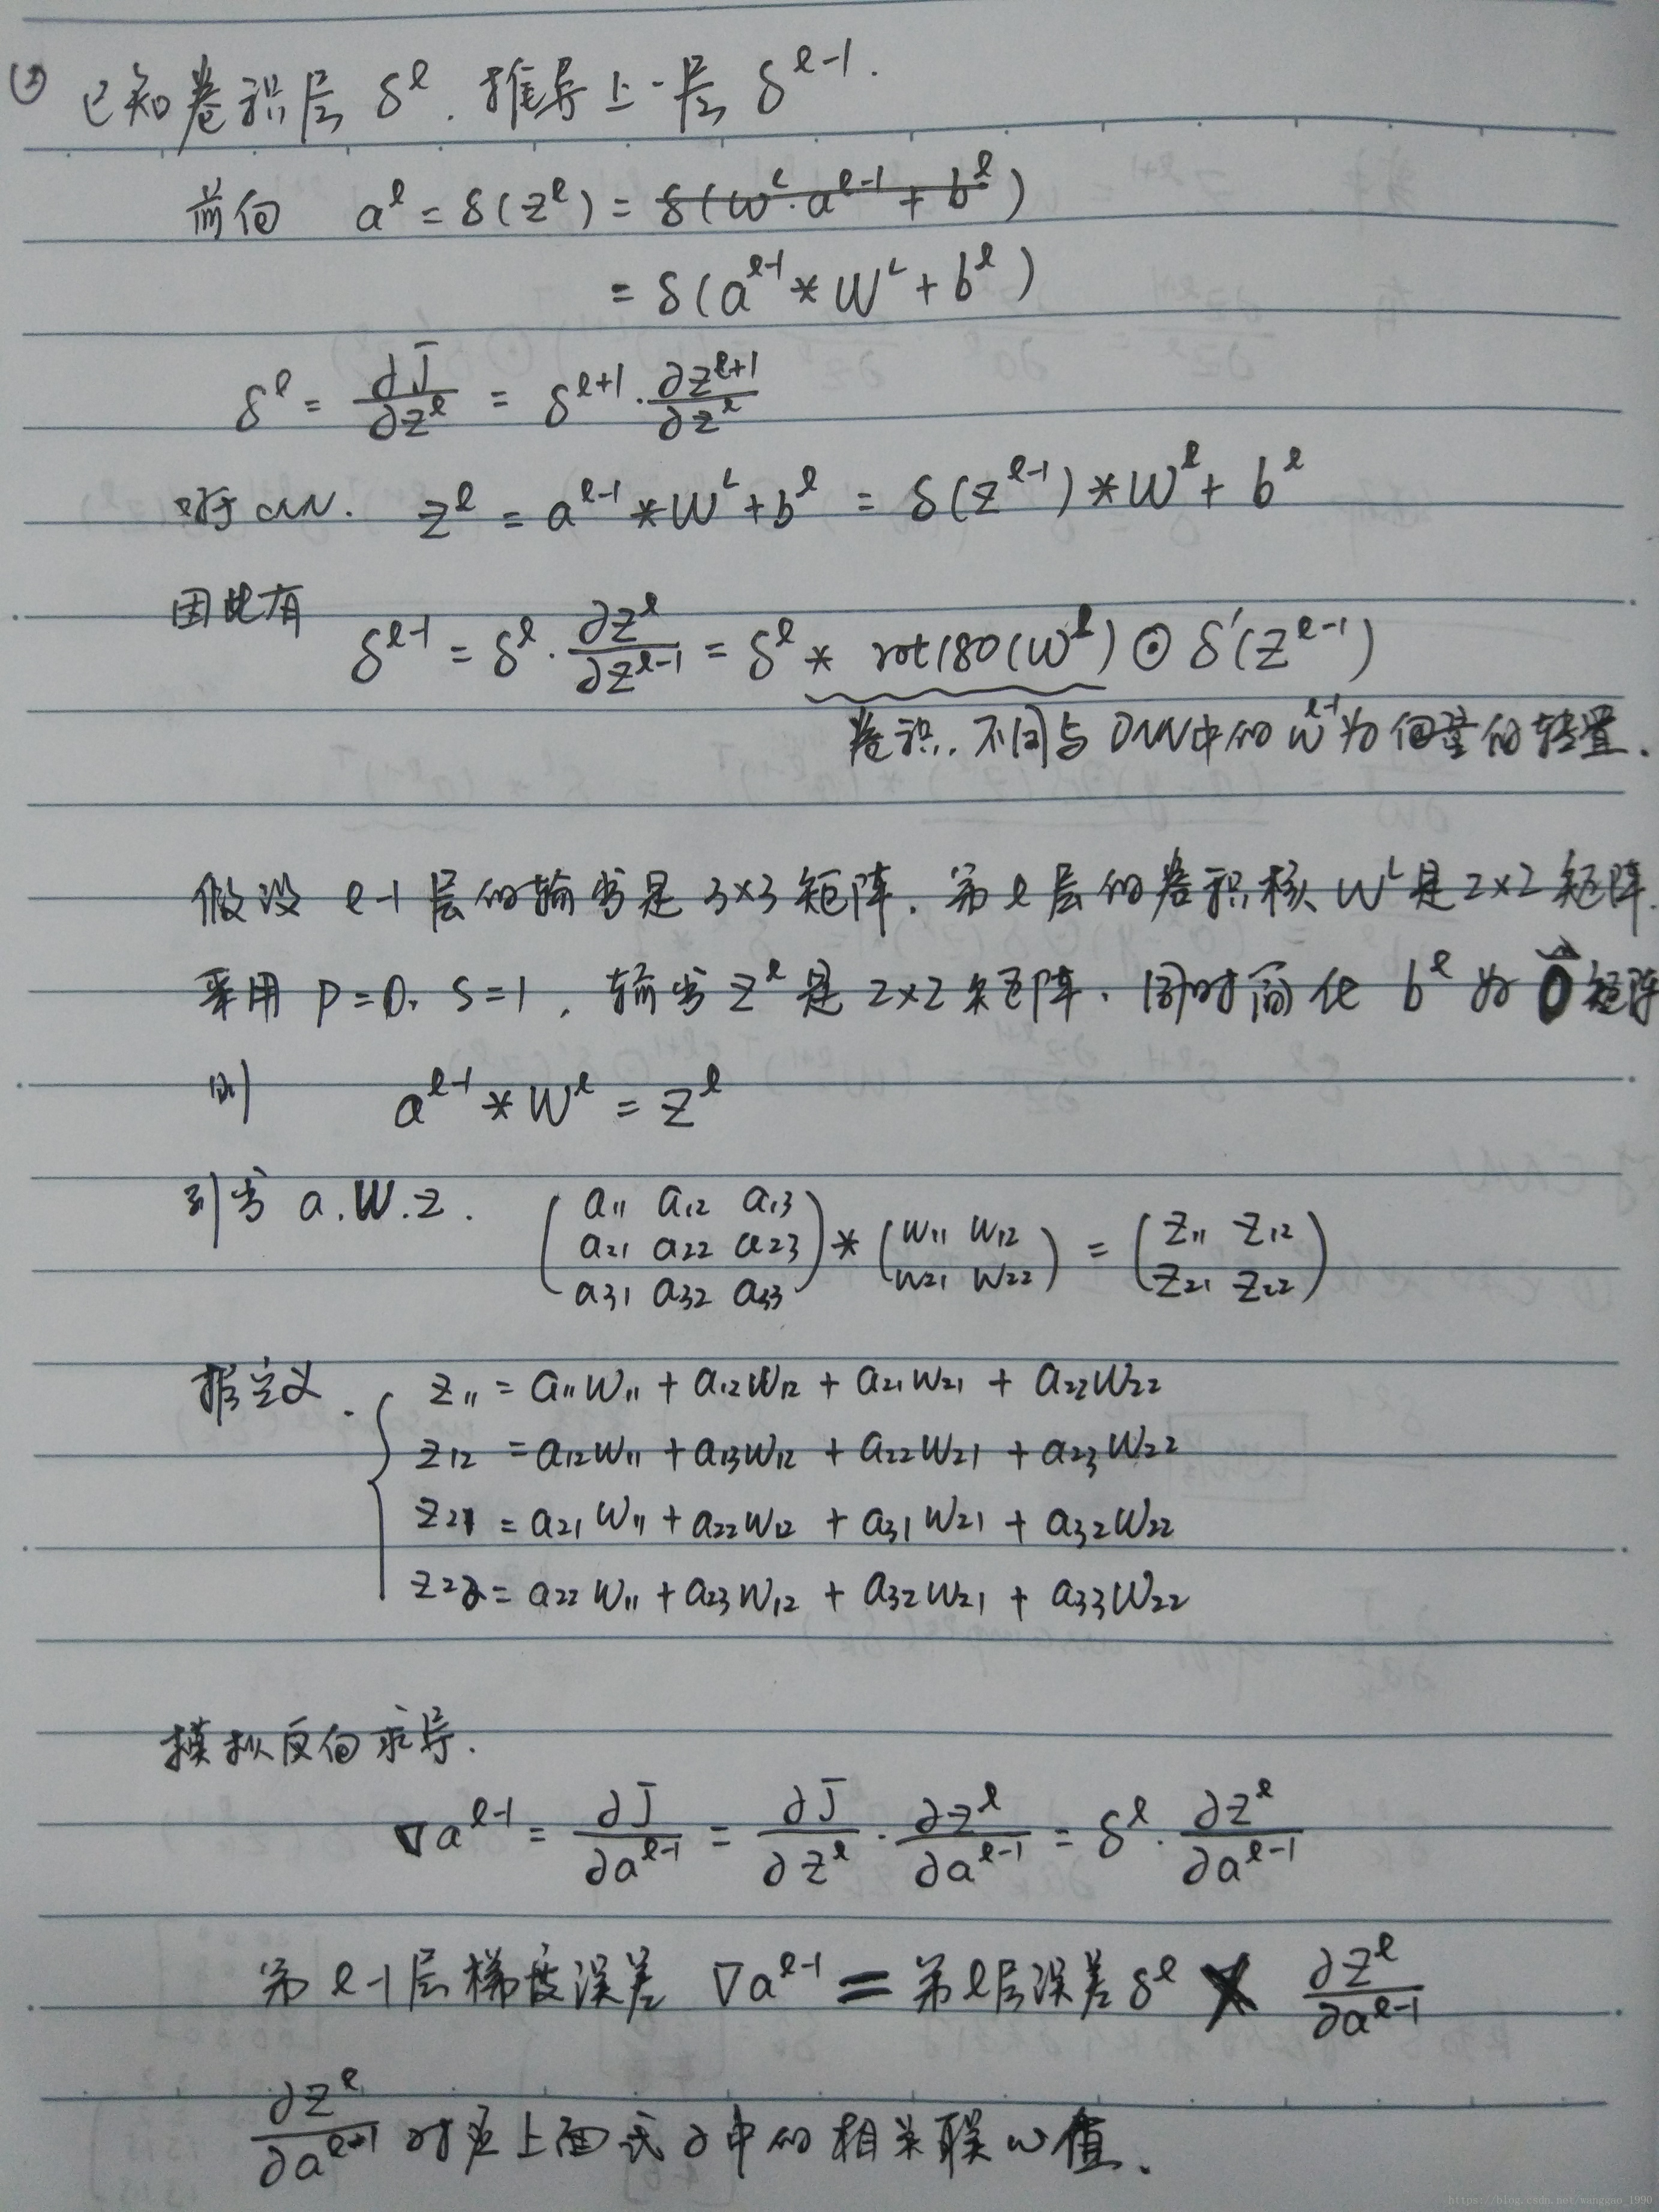 ② 已知卷积层 δ^l. 推导上一层 δ^{l-1}.
前向 a^l = δ(z^l) = δ(w^l·a^{l-1} + b^l)
= δ(a^{l-1} * W^l + b^l)
δ^l = ∂J/∂z^l = δ^{l+1}·∂z^{l+1}/∂z^l
对于CNN. z^l = a^{l-1} * W^l + b^l = δ(z^{l-1}) * W^l + b^l
因此有 δ^{l-1} = δ^l · ∂z^l/∂z^{l-1} = δ^l * rot180(W^l) ⊙ δ'(z^{l-1})
卷积, 不同与DNN中的 W^{l-1} 为向量的转置.
假设 l-1 层的输出是 3×3 矩阵. 第 l 层的卷积核 W^l 是 2×2 矩阵.
采用 P=0. S=1, 输出 z^l 是 2×2 矩阵. 同时简化 b^l 为 0 矩阵
则 a^{l-1} * W^l = z^l
列出 a.W.z. (a11 a12 a13; a21 a22 a23; a31 a32 a33) * (w11 w12; w21 w22) = (z11 z12; z21 z22)
据定义. z11 = a11w11 + a12w12 + a21w21 + a22w22
z12 = a12w11 + a13w12 + a22w21 + a23w22
z21 = a21w11 + a22w12 + a31w21 + a32w22
z22 = a22w11 + a23w12 + a32w21 + a33w22
模拟反向求导.
∇a^{l-1} = ∂J/∂a^{l-1} = ∂J/∂z^l · ∂z^l/∂a^{l-1} = δ^l · ∂z^l/∂a^{l-1}
第 l-1 层梯度误差 ∇a^{l-1} = 第 l 层误差 δ^l × ∂z^l/∂a^{l-1}
∂z^l/∂a^{l-1} 对应上面式子中的相关联 w 值.
https://blog.csdn.net/wangguo_1990